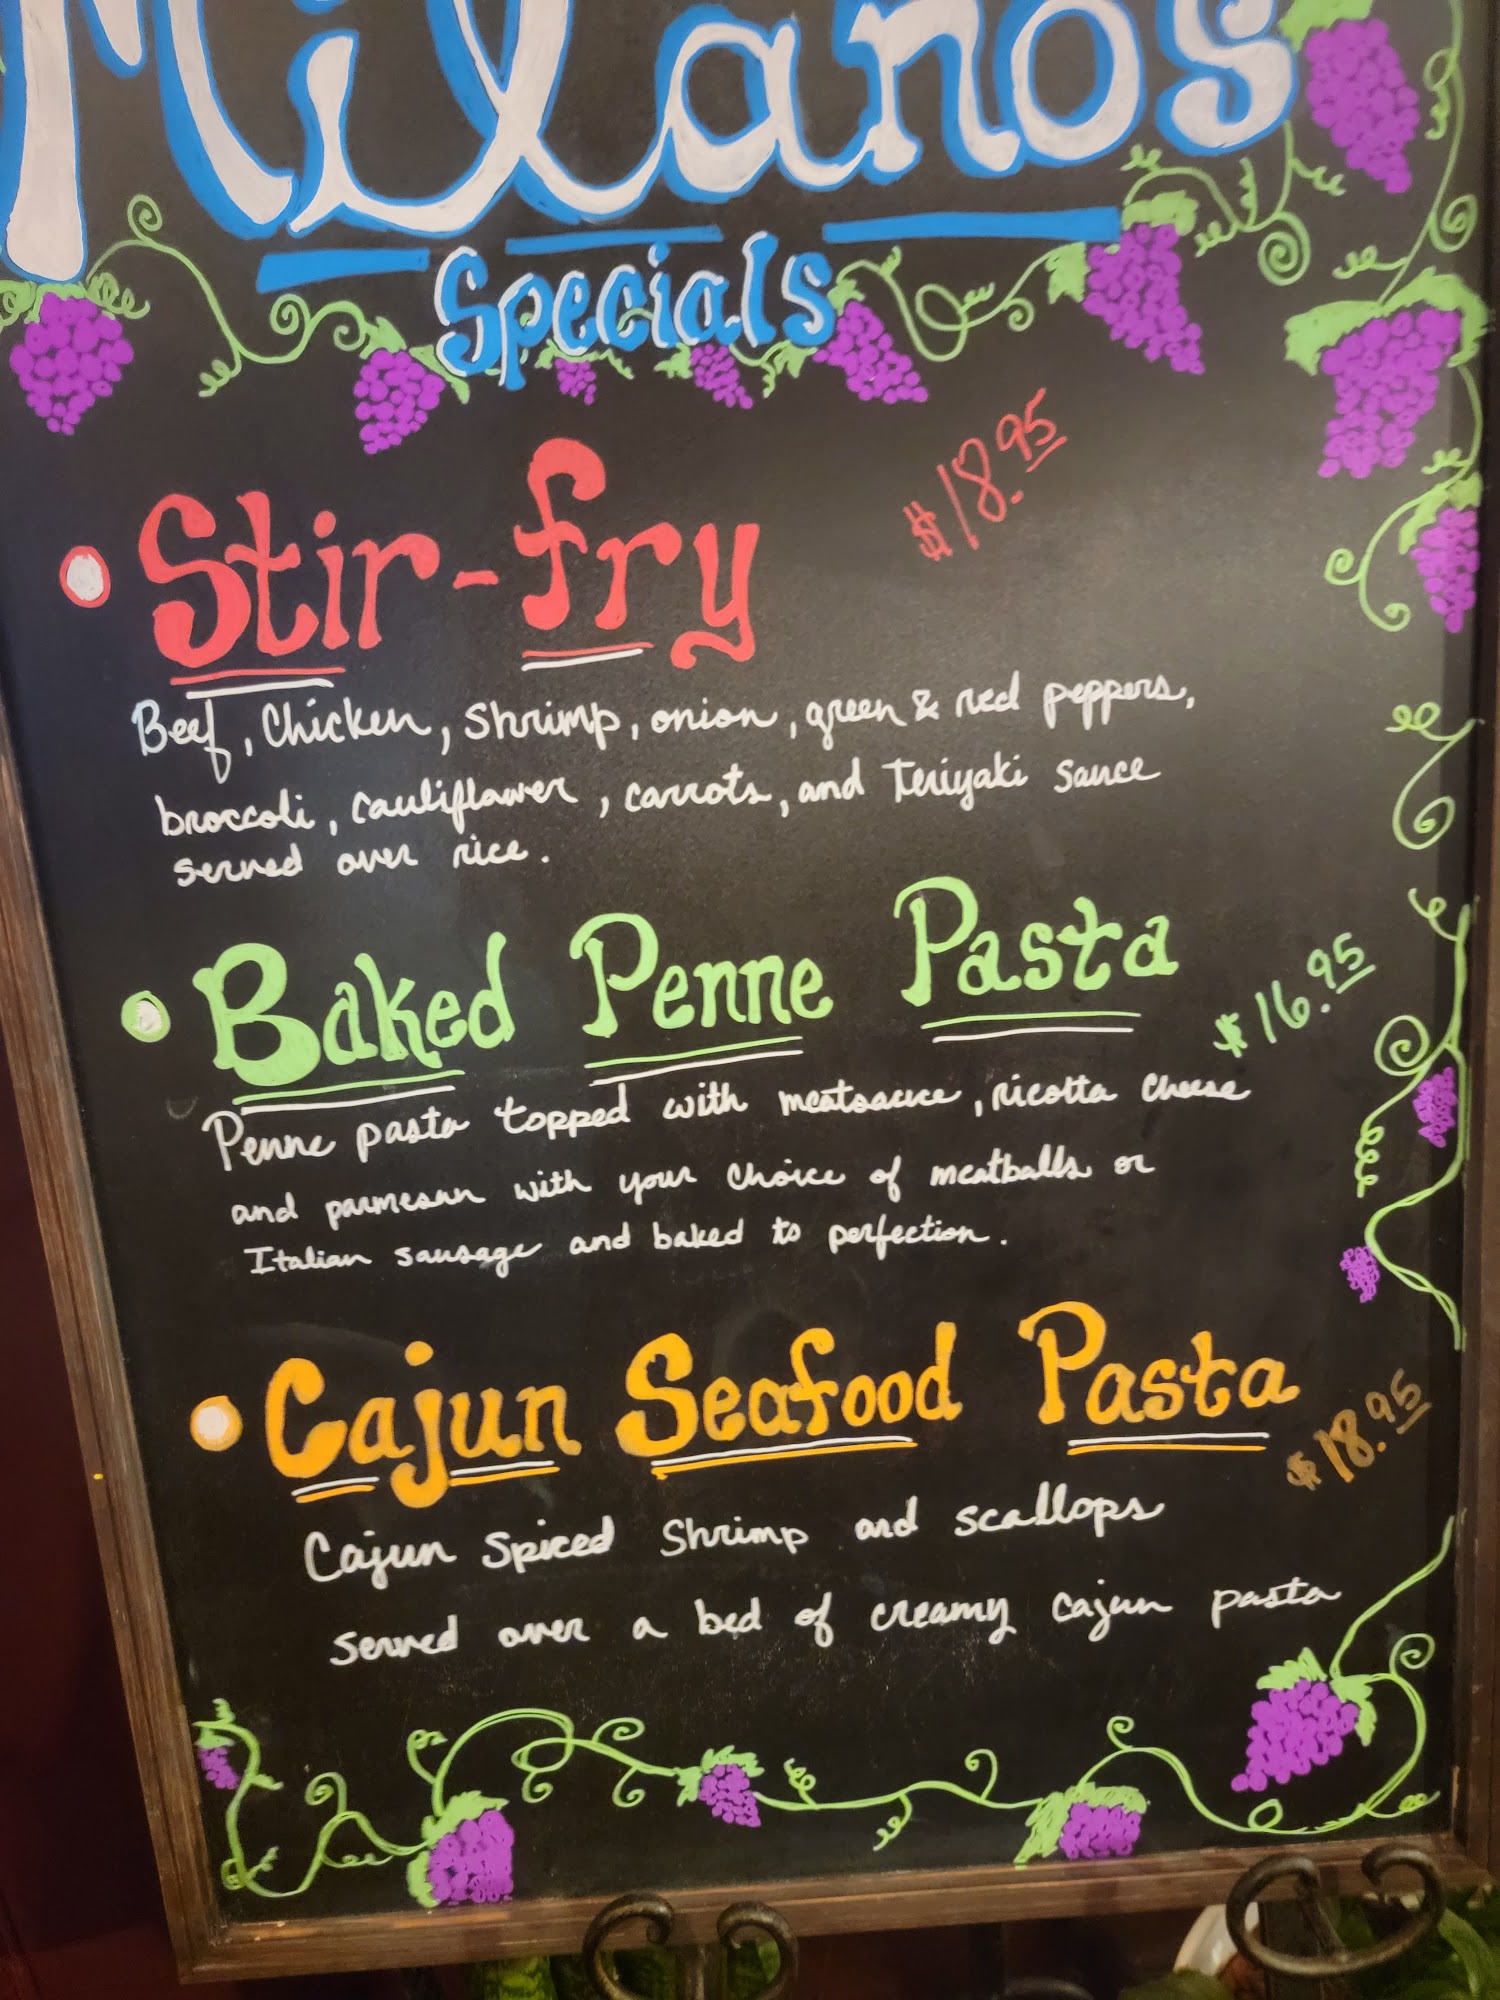 Milanos
Specials
Stir-fry $18.95
Beef, Chicken, Shrimp, onion, green & red peppers,
broccoli, cauliflower, carrots, and Teriyaki sauce
served over rice.
Baked Penne Pasta $16.95
Penne pasta topped with meatsauce, ricotta cheese
and parmesan with your choice of meatballs or
Italian sausage and baked to perfection.
Cajun Seafood Pasta $18.95
Cajun spiced Shrimp and scallops
served over a bed of creamy cajun pasta